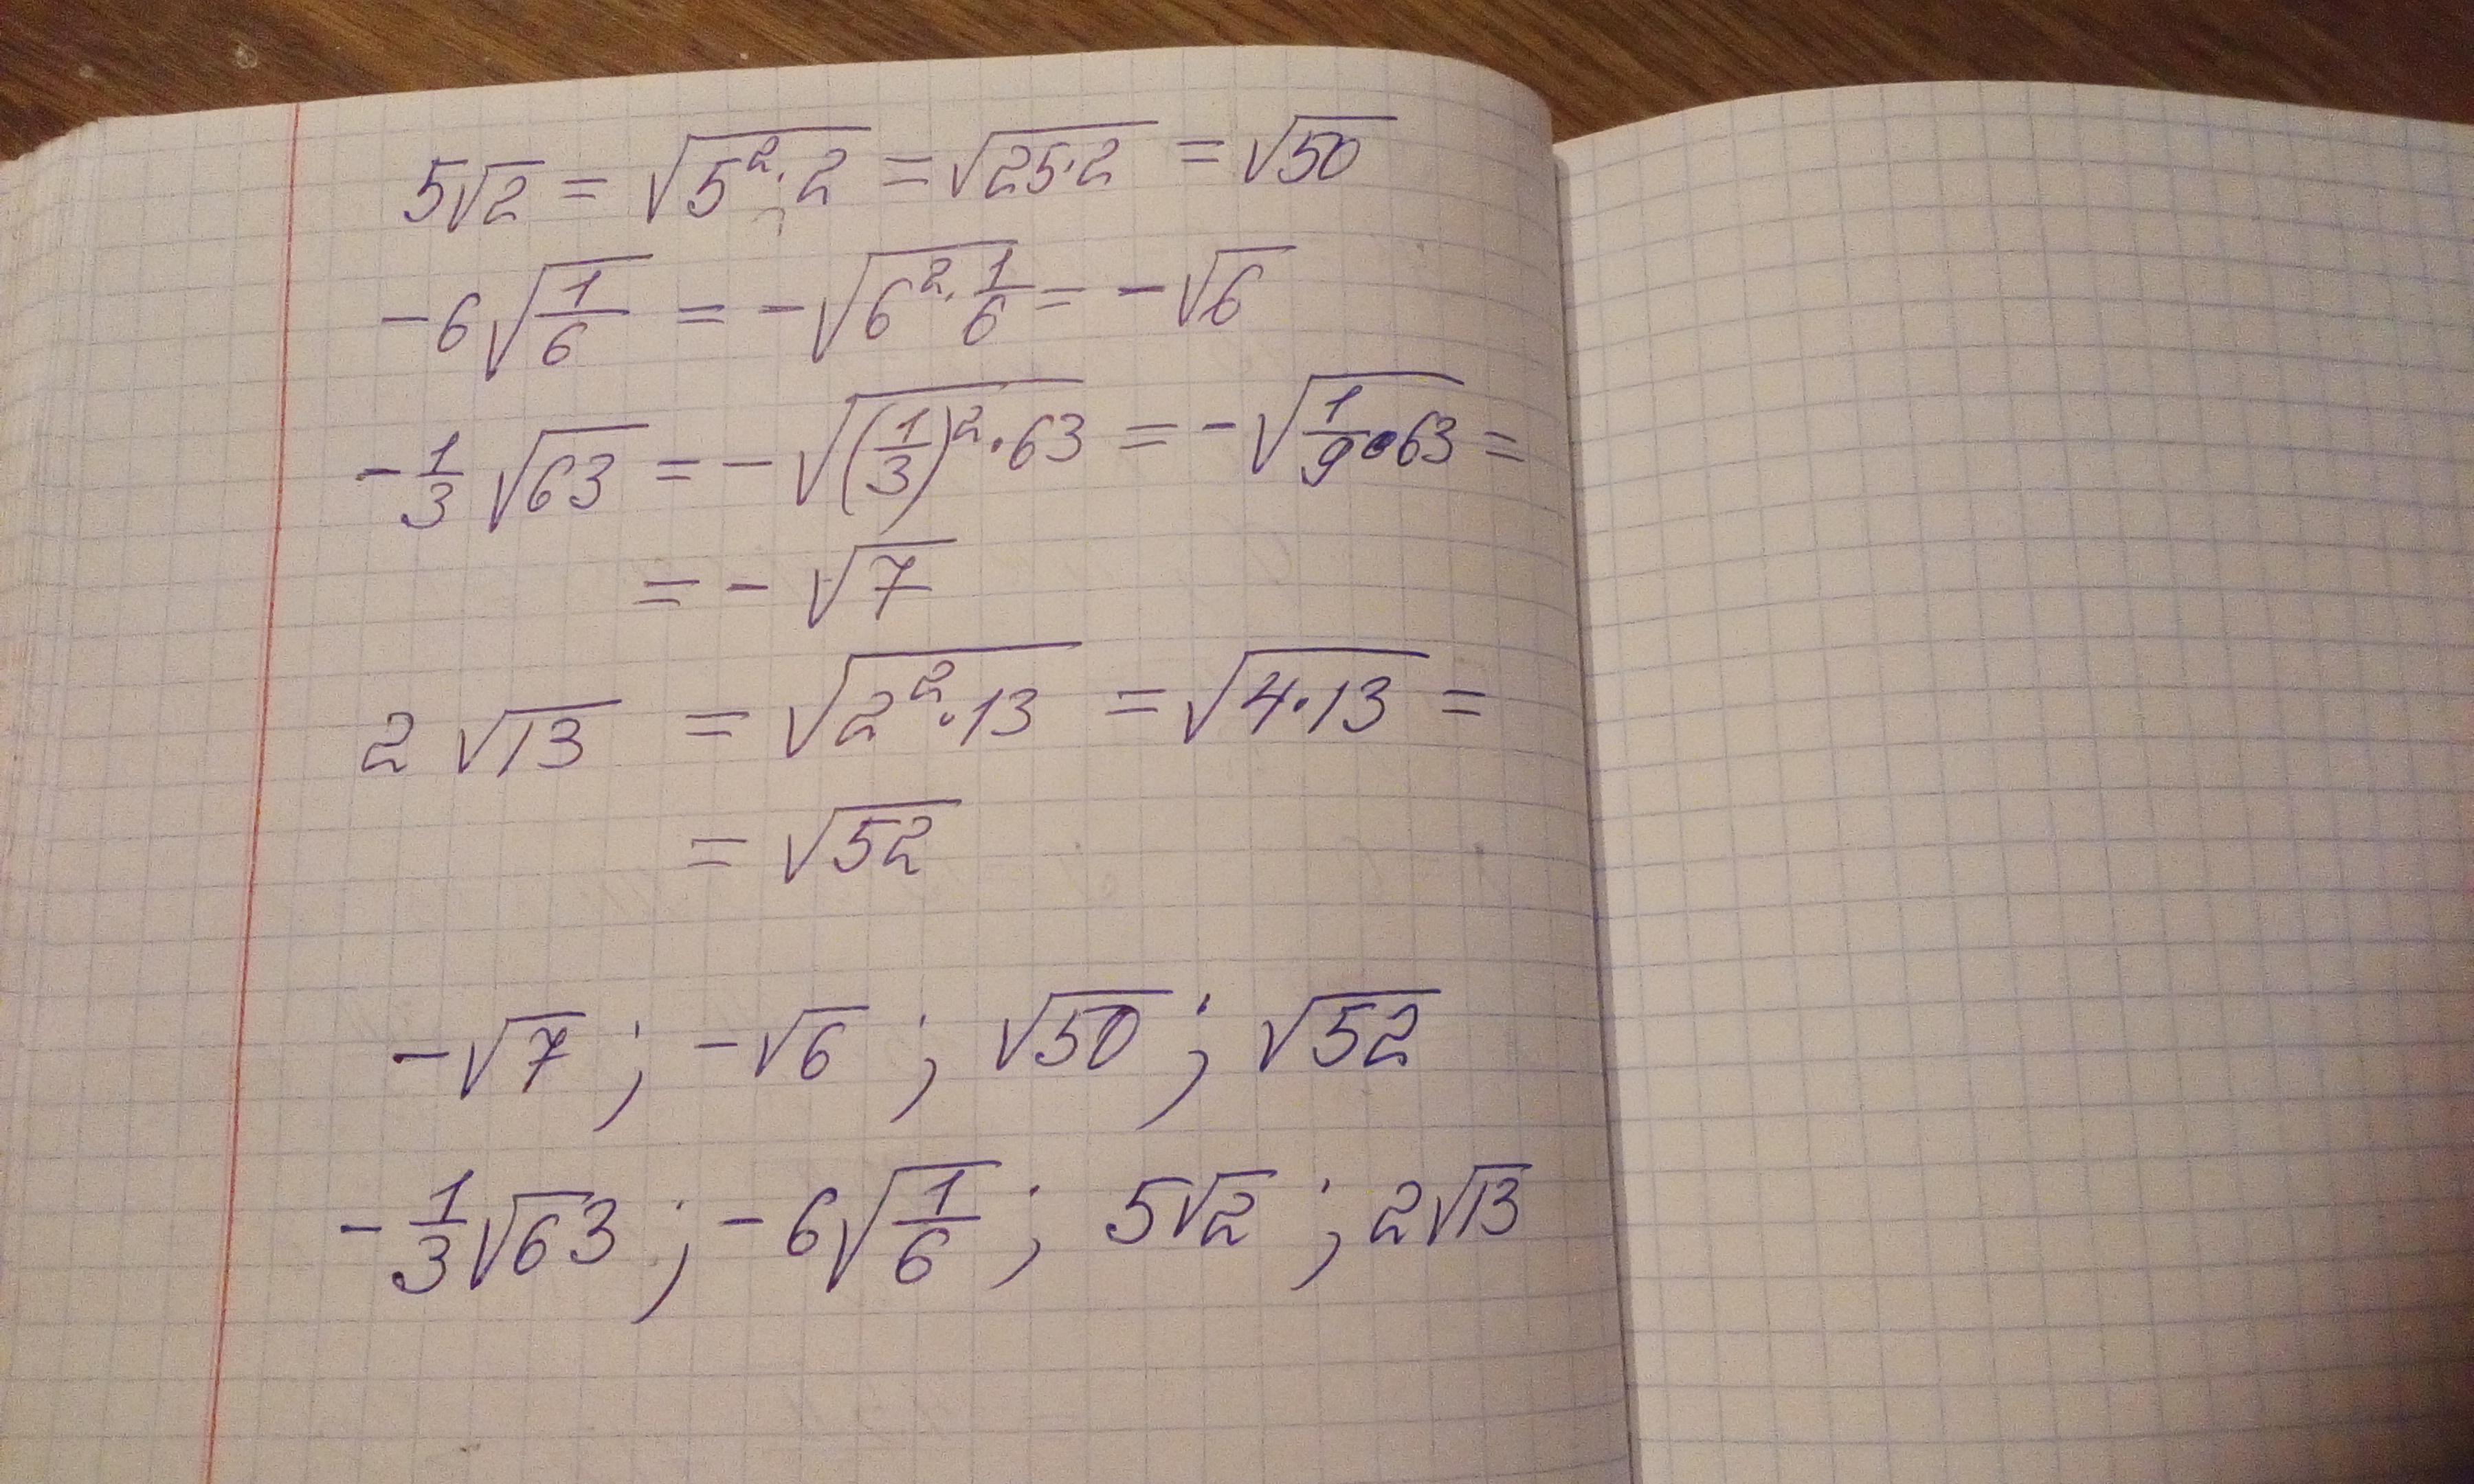 5√2 = √(5²·2) = √(25·2) = √50
-6√(1/6) = -√(6²·1/6) = -√6
-1/3 √63 = -√((1/3)²·63) = -√(1/9·63) =
= -√7
2√13 = √(2²·13) = √(4·13) =
= √52
-√7 ; -√6 ; √50 ; √52
-1/3√63 ; -6√(1/6) ; 5√2 ; 2√13